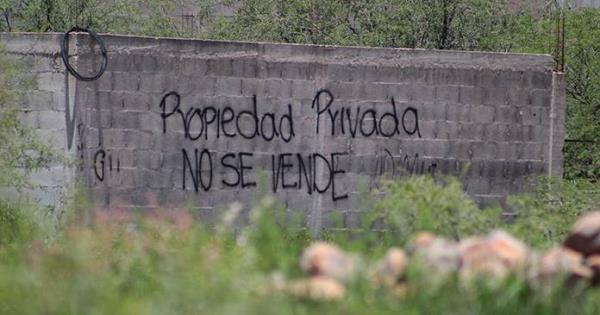 Propiedad Privada
NO SE VENDE